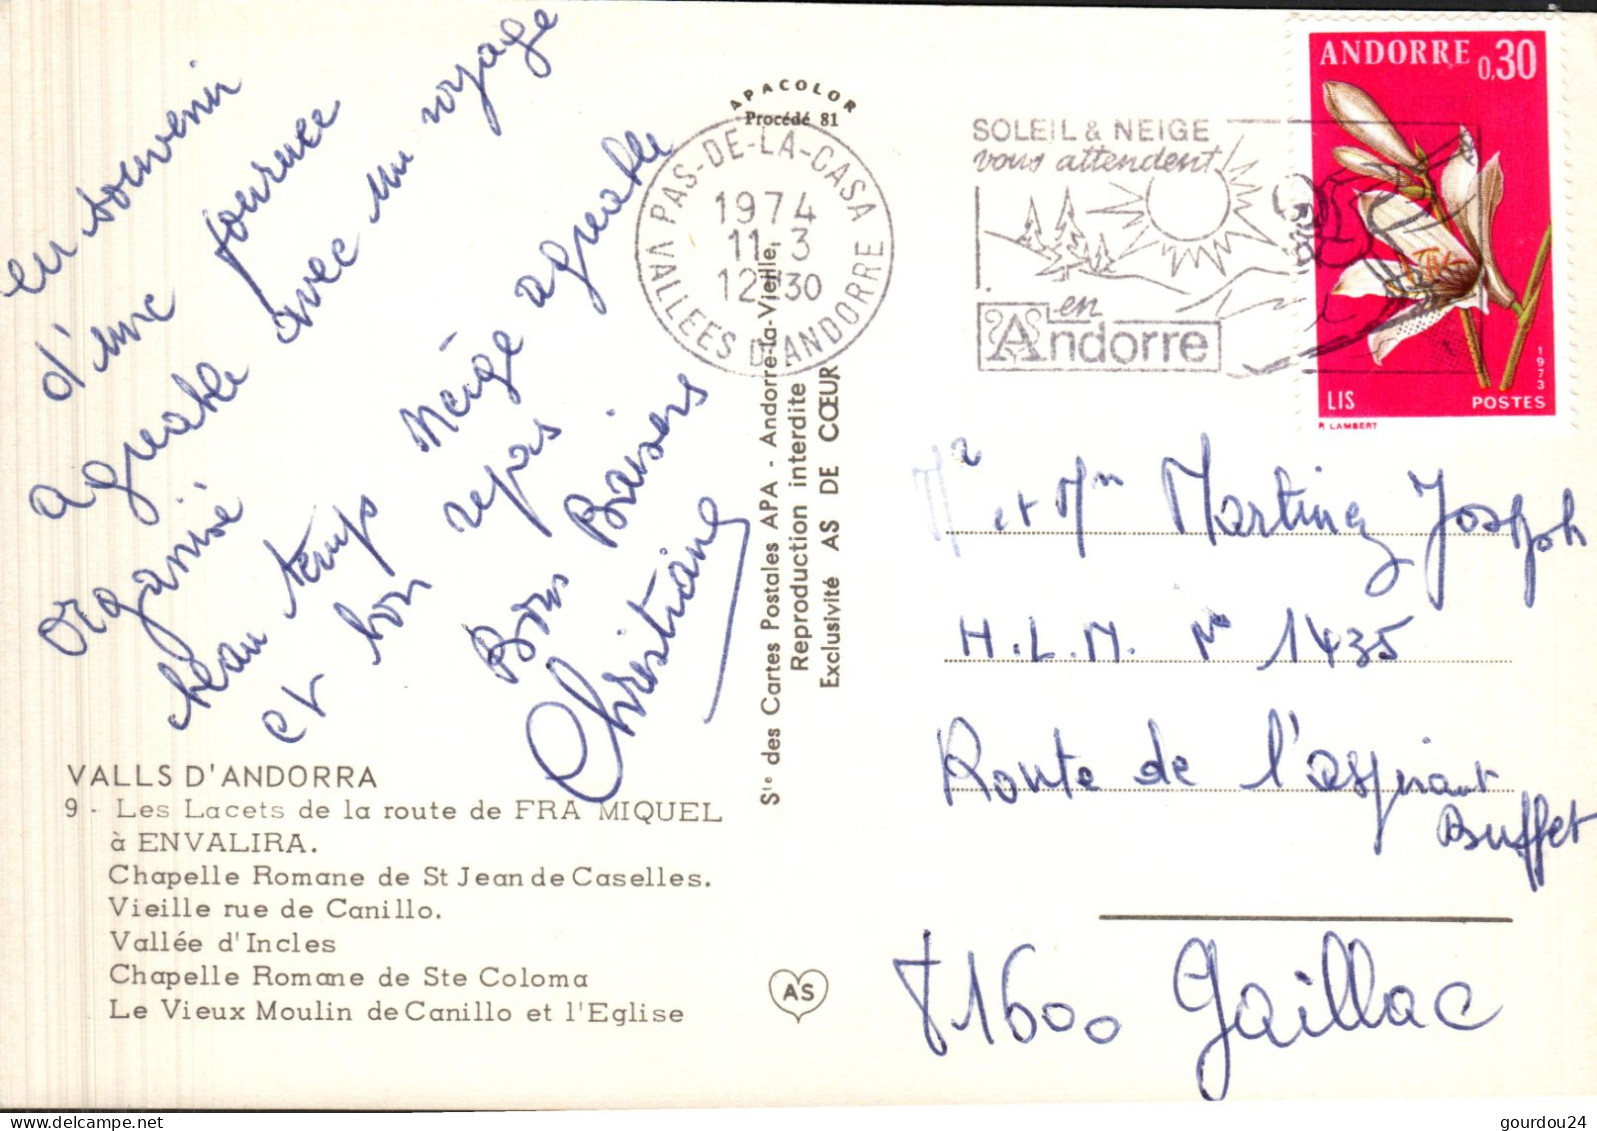 en souvenir
d'une journee
agreable avec un voyage
organisé
beau temps neige agreable
et bon repas
Bons Baisers
Christiane
VALLS D'ANDORRA
9 - Les Lacets de la route de FRA MIQUEL
à ENVALIRA.
Chapelle Romane de St Jean de Caselles.
Vieille rue de Canillo.
Vallée d'Incles
Chapelle Romane de Ste Coloma
Le Vieux Moulin de Canillo et l'Eglise
APACOLOR
Procédé 81
Ste des Cartes Postales APA - Andorre-la-Vieille
Reproduction interdite
Exclusivité AS DE CŒUR
AS
PAS-DE-LA-CASA
1974
11-3
12H30
VALLEES D'ANDORRE
SOLEIL & NEIGE
vous attendent!
en
Andorre
ANDORRE 0,30
1973
LIS POSTES
P. LAMBERT
Mr et Mm Martinez Joseph
H.L.M. No 1435
Route de l'aspirant
Buffet
81600 Gaillac
gourdou24